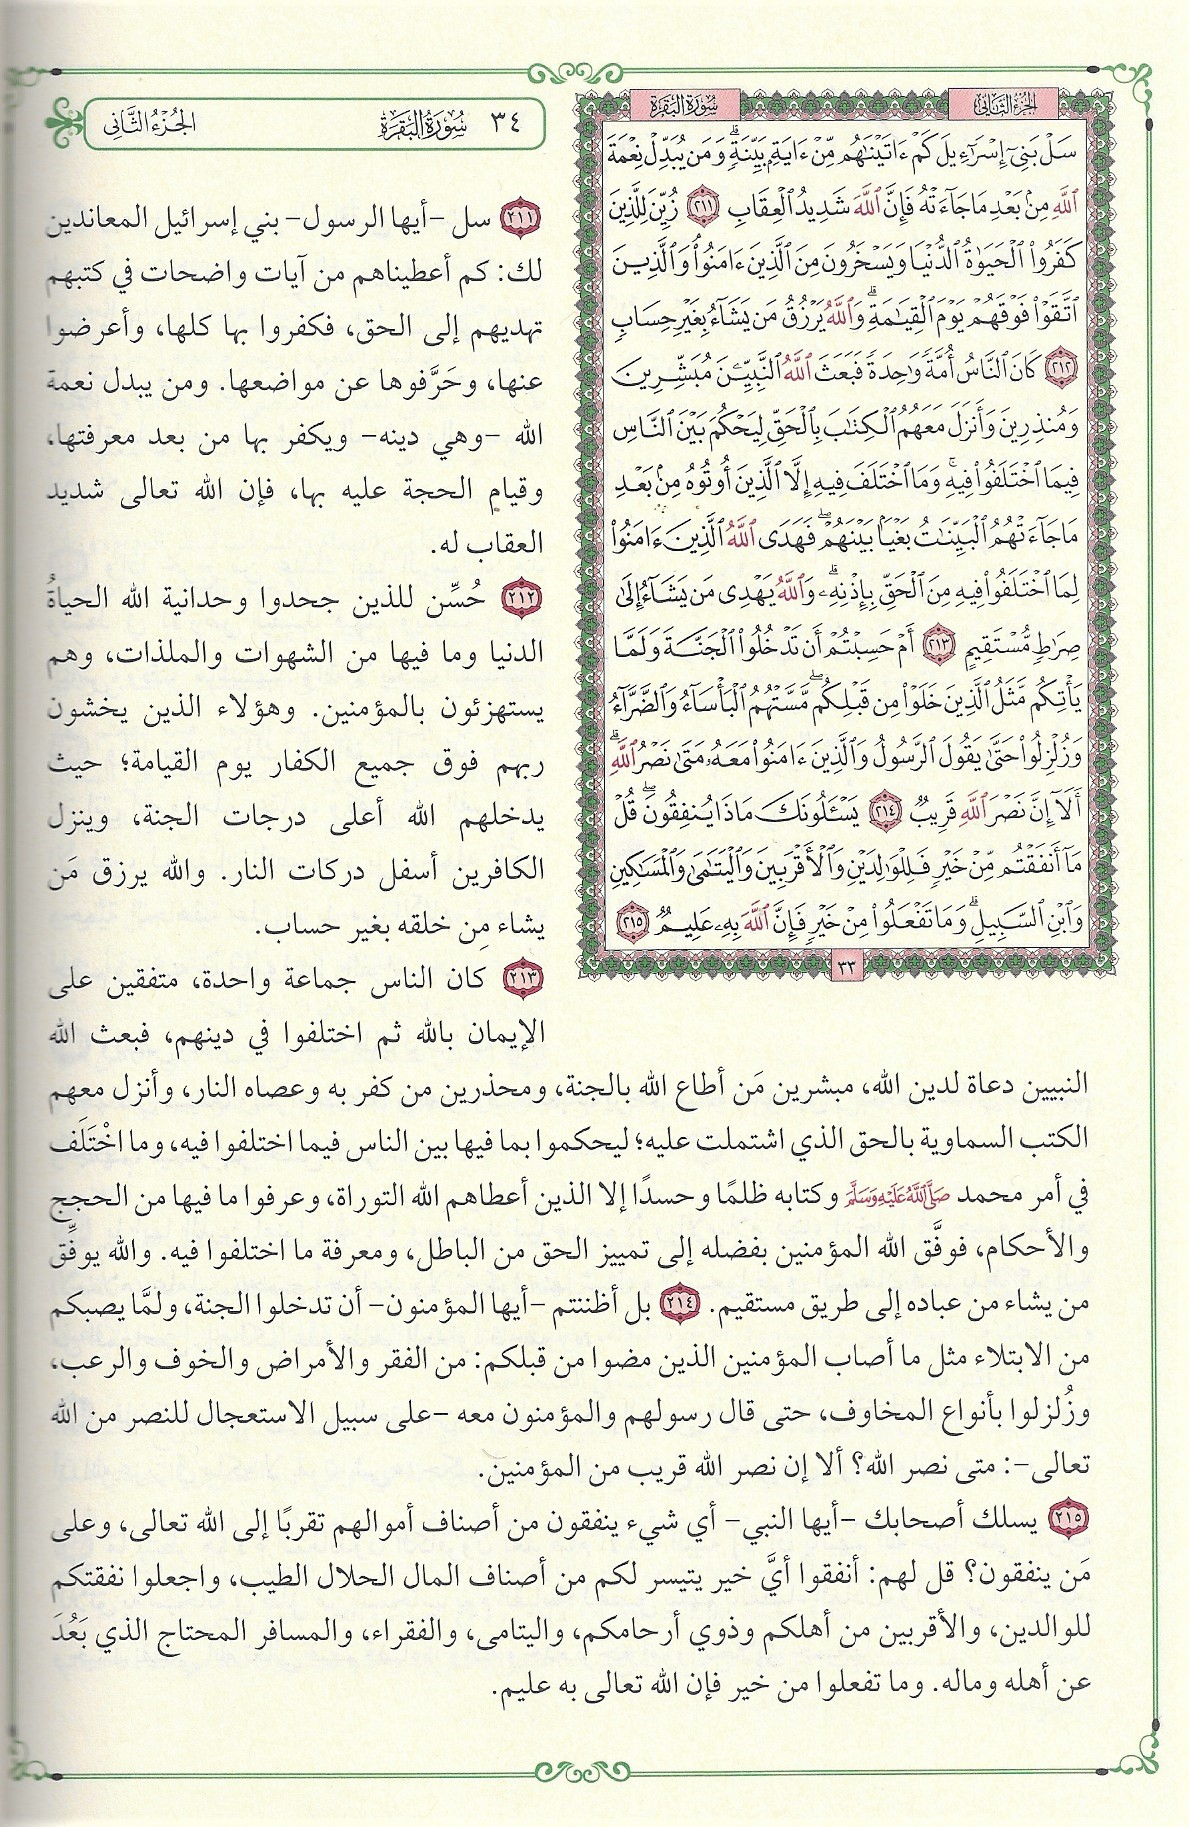 ٣٤ سُورَةُ البَقَرَةِ الجُزْءُ الثَّانِي
الجُزْءُ الثَّانِي سُورَةُ البَقَرَةِ
سَلْ بَنِيٓ إِسْرَٰٓءِيلَ كَمْ ءَاتَيْنَٰهُم مِّنْ ءَايَةِۭ بَيِّنَةٖۗ وَمَن يُبَدِّلْ نِعْمَةَ
ٱللَّهِ مِنۢ بَعْدِ مَا جَآءَتْهُ فَإِنَّ ٱللَّهَ شَدِيدُ ٱلْعِقَابِ ٢١١ زُيِّنَ لِلَّذِينَ
كَفَرُواْ ٱلْحَيَوٰةُ ٱلدُّنْيَا وَيَسْخَرُونَ مِنَ ٱلَّذِينَ ءَامَنُواْۘ وَٱلَّذِينَ
ٱتَّقَوْاْ فَوْقَهُمْ يَوْمَ ٱلْقِيَٰمَةِۗ وَٱللَّهُ يَرْزُقُ مَن يَشَآءُ بِغَيْرِ حِسَابٖ
٢١٢ كَانَ ٱلنَّاسُ أُمَّةٗ وَٰحِدَةٗ فَبَعَثَ ٱللَّهُ ٱلنَّبِيِّـۧنَ مُبَشِّرِينَ
وَمُنذِرِينَ وَأَنزَلَ مَعَهُمُ ٱلْكِتَٰبَ بِٱلْحَقِّ لِيَحْكُمَ بَيْنَ ٱلنَّاسِ
فِيمَا ٱخْتَلَفُواْ فِيهِۚ وَمَا ٱخْتَلَفَ فِيهِ إِلَّا ٱلَّذِينَ أُوتُوهُ مِنۢ بَعْدِ
مَا جَآءَتْهُمُ ٱلْبَيِّنَٰتُ بَغْيَۢا بَيْنَهُمْۖ فَهَدَى ٱللَّهُ ٱلَّذِينَ ءَامَنُواْ
لِمَا ٱخْتَلَفُواْ فِيهِ مِنَ ٱلْحَقِّ بِإِذْنِهِۦۗ وَٱللَّهُ يَهْدِي مَن يَشَآءُ إِلَىٰ
صِرَٰطٖ مُّسْتَقِيمٍ ٢١٣ أَمْ حَسِبْتُمْ أَن تَدْخُلُواْ ٱلْجَنَّةَ وَلَمَّا
يَأْتِكُم مَّثَلُ ٱلَّذِينَ خَلَوْاْ مِن قَبْلِكُمۖ مَّسَّتْهُمُ ٱلْبَأْسَآءُ وَٱلضَّرَّآءُ
وَزُلْزِلُواْ حَتَّىٰ يَقُولَ ٱلرَّسُولُ وَٱلَّذِينَ ءَامَنُواْ مَعَهُۥ مَتَىٰ نَصْرُ ٱللَّهِۗ
أَلَآ إِنَّ نَصْرَ ٱللَّهِ قَرِيبٞ ٢١٤ يَسْـَٔلُونَكَ مَاذَا يُنفِقُونَۖ قُلْ
مَآ أَنفَقْتُم مِّنْ خَيْرٖ فَلِلْوَٰلِدَيْنِ وَٱلْأَقْرَبِينَ وَٱلْيَتَٰمَىٰ وَٱلْمَسَٰكِينِ
وَٱبْنِ ٱلسَّبِيلِۗ وَمَا تَفْعَلُواْ مِنْ خَيْرٖ فَإِنَّ ٱللَّهَ بِهِۦ عَلِيمٞ ٢١٥
٣٣
٢١١ سل -أيها الرسول- بني إسرائيل المعاندين
لك: كم أعطيناهم من آيات واضحات في كتبهم
تهديهم إلى الحق، فكفروا بها كلها، وأعرضوا
عنها، وحَرَّفوها عن مواضعها. ومن يبدل نعمة
الله -وهي دينه- ويكفر بها من بعد معرفتها،
وقيام الحجة عليه بها، فإن الله تعالى شديد
العقاب له.
٢١٢ حُسِّن للذين جحدوا وحدانية الله الحياةُ
الدنيا وما فيها من الشهوات والملذات، وهم
يستهزئون بالمؤمنين. وهؤلاء الذين يخشون
ربهم فوق جميع الكفار يوم القيامة؛ حيث
يدخلهم الله أعلى درجات الجنة، وينزل
الكافرين أسفل دركات النار. والله يرزق مَن
يشاء مِن خلقه بغير حساب.
٢١٣ كان الناس جماعة واحدة، متفقين على
الإيمان بالله ثم اختلفوا في دينهم، فبعث الله
النبيين دعاة لدين الله، مبشرين مَن أطاع الله بالجنة، ومحذرين من كفر به وعصاه النار، وأنزل معهم
الكتب السماوية بالحق الذي اشتملت عليه؛ ليحكموا بما فيها بين الناس فيما اختلفوا فيه، وما اخْتَلَف
في أمر محمد صَلَّى اللَّهُ عَلَيْهِ وَسَلَّمَ وكتابه ظلمًا وحسدًا إلا الذين أعطاهم الله التوراة، وعرفوا ما فيها من الحجج
والأحكام، فوفَّق الله المؤمنين بفضله إلى تمييز الحق من الباطل، ومعرفة ما اختلفوا فيه. والله يوفِّق
من يشاء من عباده إلى طريق مستقيم. ٢١٤ بل أظننتم -أيها المؤمنون- أن تدخلوا الجنة، ولمَّا يصبكم
من الابتلاء مثل ما أصاب المؤمنين الذين مضوا من قبلكم: من الفقر والأمراض والخوف والرعب،
وزُلزلوا بأنواع المخاوف، حتى قال رسولهم والمؤمنون معه -على سبيل الاستعجال للنصر من الله
تعالى-: متى نصر الله؟ ألا إن نصر الله قريب من المؤمنين.
٢١٥ يسلك أصحابك -أيها النبي- أي شيء ينفقون من أصناف أموالهم تقربًا إلى الله تعالى، وعلى
مَن ينفقون؟ قل لهم: أنفقوا أيَّ خير يتيسر لكم من أصناف المال الحلال الطيب، واجعلوا نفقتكم
للوالدين، والأقربين من أهلكم وذوي أرحامكم، واليتامى، والفقراء، والمسافر المحتاج الذي بَعُدَ
عن أهله وماله. وما تفعلوا من خير فإن الله تعالى به عليم.